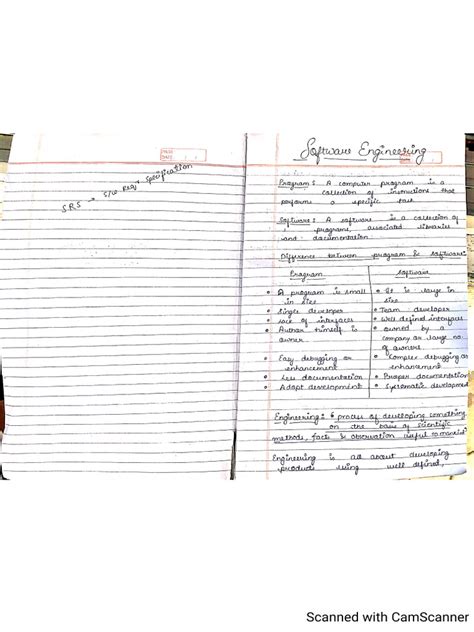 SRS → S/W Req. Specification
Software Engineering
Program: A computer program is a
collection of instructions that
performs a specific task
Software: A software is a collection of
programs, associated libraries
and documentation
Difference between program & software:
Program Software
• A program is small • It is large in
in size size
• Single developer • Team developer
• Lack of interfaces • Well defined interfaces
• Author himself is • Owned by a
owner. company or large no.
of owners.
• Easy debugging or • Complex debugging or
enhancement enhancement
• Less documentation • Proper documentation
• Adopt development • Systematic developed
Engineering: process of developing something
on the basis of scientific
methods, facts & observation useful to mankind
Engineering is all about developing
products using well defined,
Scanned with CamScanner